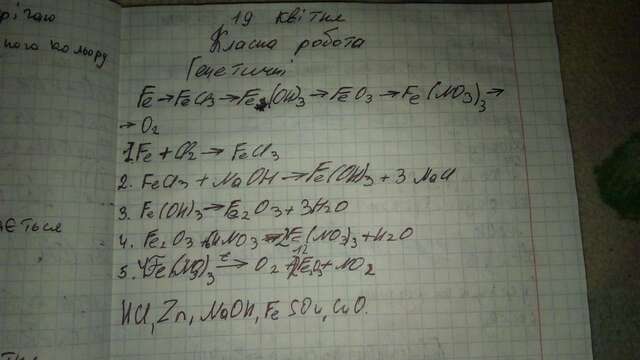 рігаю
ного кольору
ається
19 квітня
Класна робота
Генетичні
Fe→FeCl3→Fe(OH)3→FeO3→Fe(NO3)3→
→O2
1. Fe + Cl2 → FeCl3
2. FeCl3 + NaOH → Fe(OH)3 + 3 NaCl
3. Fe(OH)3 → Fe2O3 + 3H2O
4. Fe2O3 + 6HNO3 → 2Fe(NO3)3 + H2O
5. 4Fe(NO3)3 t→ O2 + 2Fe2O3 + 12NO2
HCl, Zn, NaOH, FeSO4, CuO.